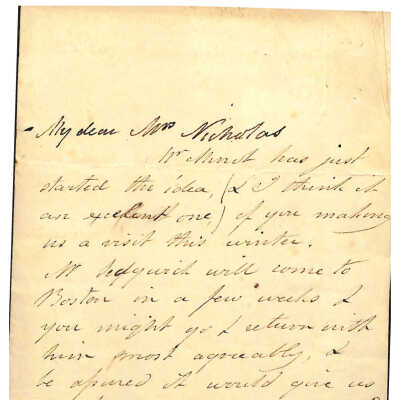 My dear Mrs Nicholas
has just
started the idea, (& I think it
an excelent one,) of you making
us a visit this winter.
Mr Sedgwick will come to
Boston in a few weeks &
you might go & return with
him most agreably, &
be assured it would give us